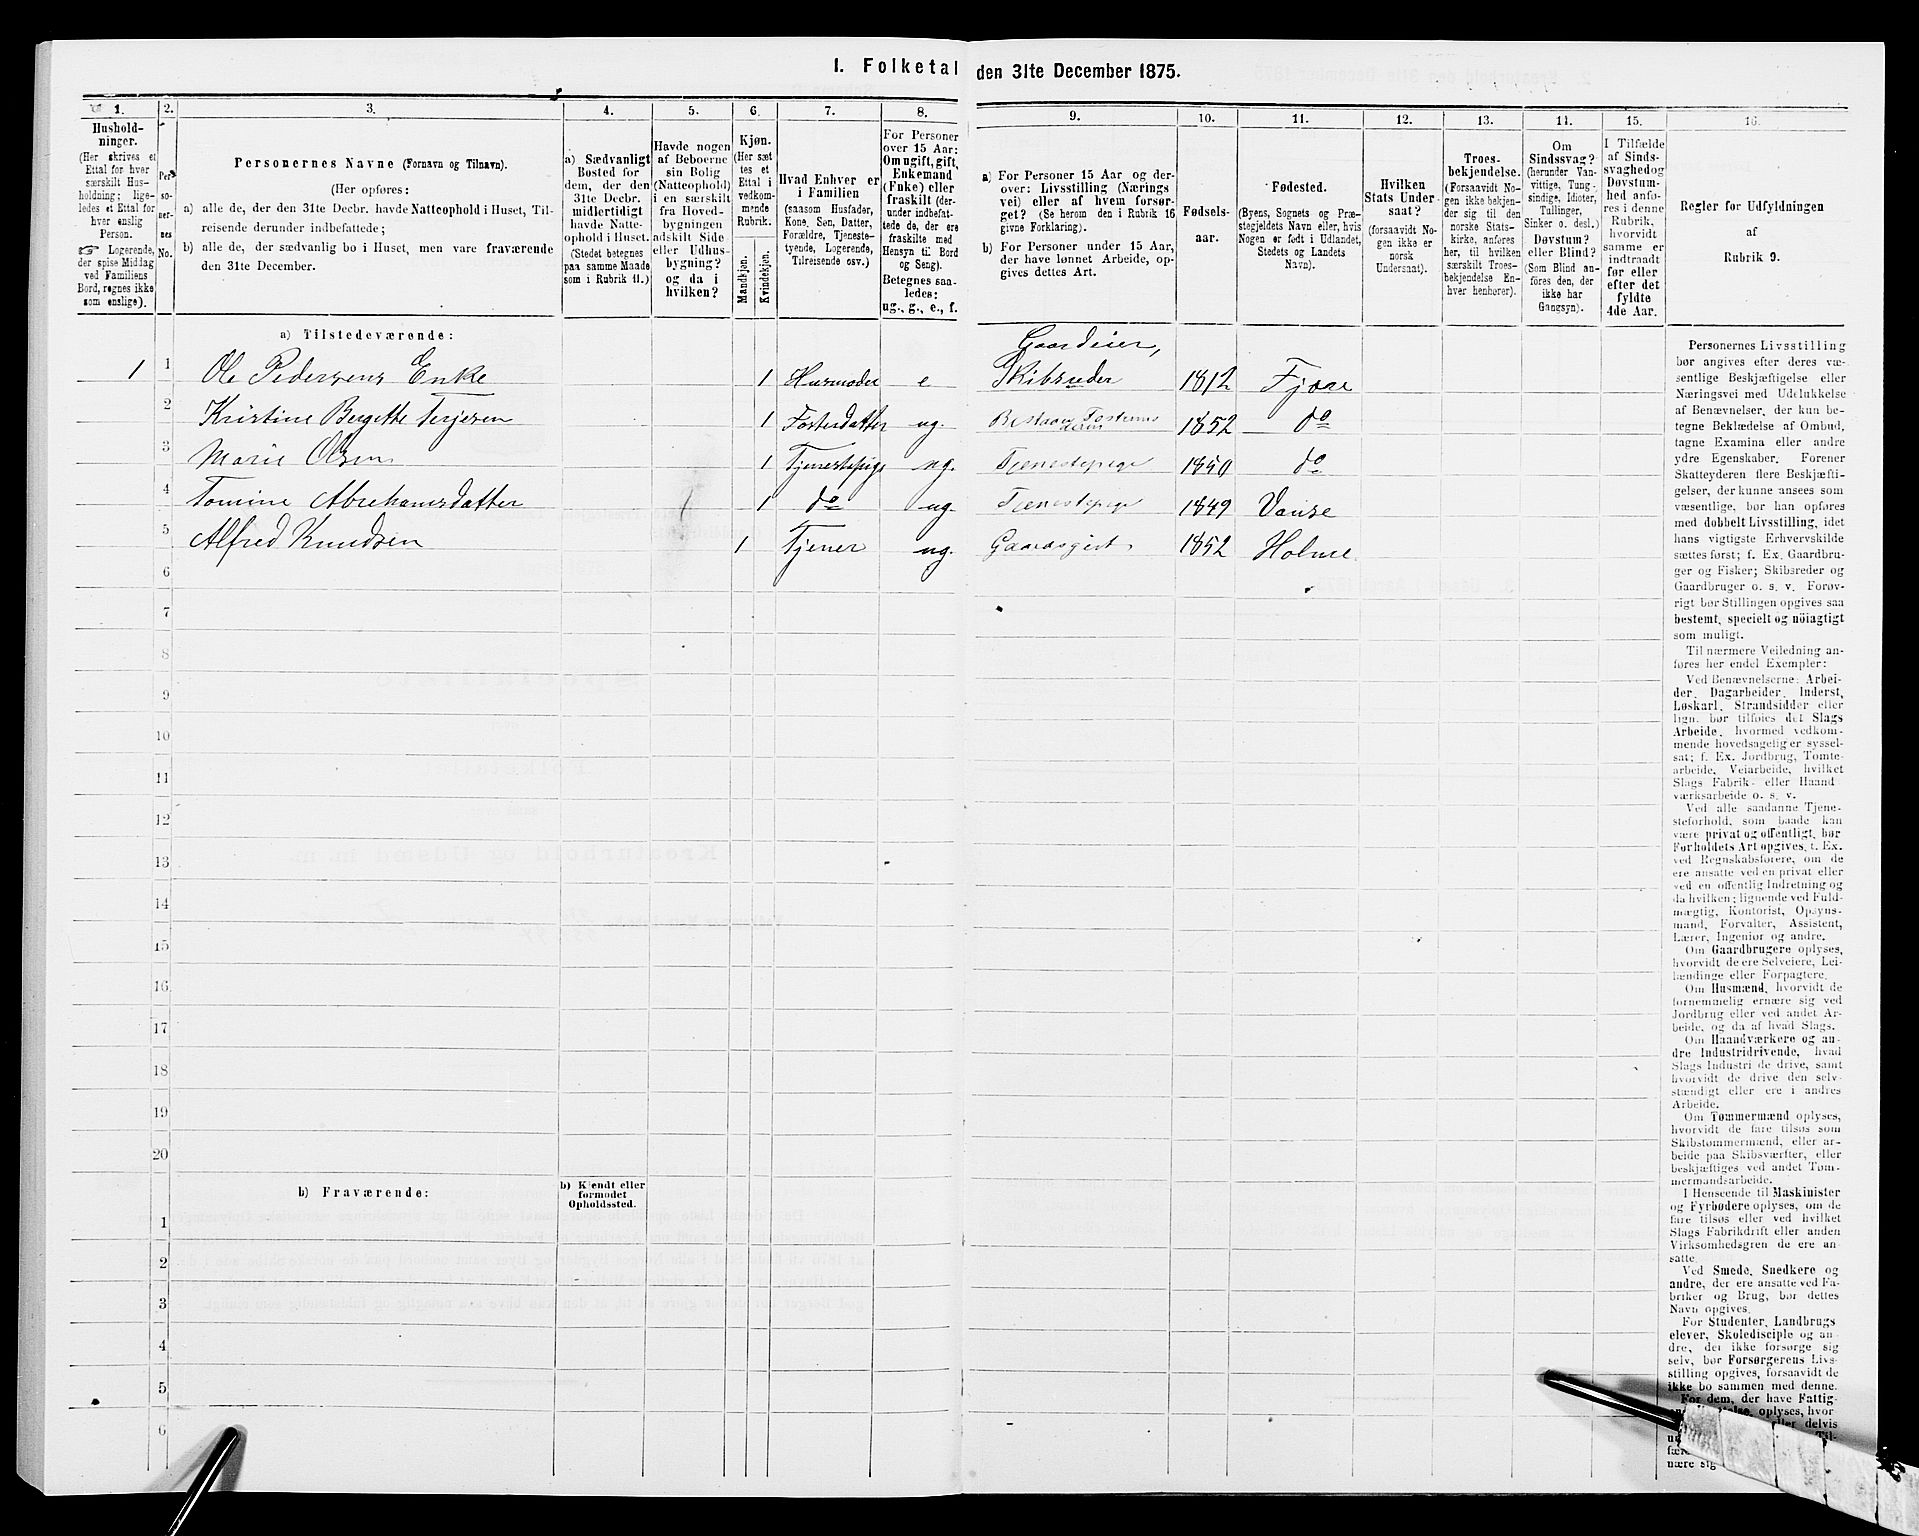 1. Folketal den 31te December 1875.
1. 2. 3. 4. 5. 6. 7. 8. 9. 10. 11. 12. 13. 14. 15. 16.
Hushold-
ninger.
(Her skrives et
Ettal for hver
særskilt Hus-
holdning; lige-
ledes et Ettal for
hver enslig
Person.
☞ Logerende,
der spise Middag
ved Familiens
Bord, regnes ikke
som enslige).
Per-
so-
ner-
nes
No.
Personernes Navne (Fornavn og Tilnavn).
(Her opføres:
a) alle de, der den 31te Decbr. havde Natteophold i Huset, Til-
reisende derunder indbefattede;
b) alle de, der sædvanlig bo i Huset, men vare fraværende
den 31te December.
a) Sædvanligt
Bosted for
dem, der den
31te Decbr.
midlertidigt
havde Natte-
ophold i Huset.
(Stedet betegnes
paa samme Maade
som i Rubrik 11.)
Havde nogen
af Beboerne
sin Bolig
(Natteophold)
i en særskilt
fra Hoved-
bygningen
adskilt Side
eller Udhus-
bygning?
og da i
hvilken?
Kjøn.
(Her sæt-
tes et
Ettal i
vedkom-
mende
Rubrik.
Mandkjøn.
Kvindekjøn.
Hvad Enhver er
i Familien
(saasom Husfader,
Kone, Søn, Datter,
Forældre, Tjeneste-
tyende, Logerende,
Tilreisende osv.)
For Personer
over 15 Aar:
Om ugift, gift,
Enkemand
(Enke) eller
fraskilt (der-
under indbefat-
tede de, der ere
fraskilte med
Hensyn til Bord
og Seng).
Betegnes saa-
ledes:
ug., g., e., f.
a) For Personer 15 Aar og der-
over: Livsstilling (Nærings
vei) eller af hvem forsør-
get? (Se herom den i Rubrik 16
givne Forklaring).
b) For Personer under 15 Aar,
der have lønnet Arbeide, op-
gives dettes Art.
Fødsels-
aar.
Fødested.
(Byens, Sognets og Præ-
stegjeldets Navn eller, hvis
Nogen er født i Udlandet,
Stedets og Landets
Navn).
Hvilken
Stats Under-
saat?
(forsaavidt No-
gen ikke er
norsk
Undersaat).
Troes-
bekjendelse.
(Forsaavidt No-
gen ikke bekjen-
der sig til den
norske Stats-
kirke, anføres
her, til hvilken
særskilt Troes-
bekjendelse En-
hver henhører).
Om
Sindssvag?
(herunder Van-
vittige, Tung-
sindige, Idioter,
Tullinger,
Sinker o. desl.)
Døvstum?
eller Blind?
(Som Blind an-
føres den, der
ikke har
Gangsyn).
I Tilfælde
af Sinds-
svaghed og
Døvstum-
hed anfø-
res i denne
Rubrik,
hvorvidt
samme er
indtraadt
før eller
efter det
fyldte
4de Aar.
Regler for Udfyldningen
af
Rubrik 9.
a) Tilstedeværende:
Gaardeier,
1 1 Ole Pedersens Enke 1 Husmoder e Skibsreder 1812 Fjære
2 Kristine Bergitte Terjesen 1 Fosterdatter ug. 1852 do
3 Marie Olsen 1 Tjenestepige ug. Tjenestepige 1850 do
4 Tomine Abrahamsdatter 1 do ug. Tjenestepige 1849 Vanse
5 Alfred Knudsen 1 Tjener ug. 1852 Holme
6
7
8
9
10
11
12
13
14
15
16
17
18
19
20
b) Fraværende:
b) Kjendt eller
formodet
Opholdssted.
1
2
3
4
5
6
Personernes Livsstilling
bør angives efter deres væ-
sentlige Beskjæftigelse eller
Næringsvei med Udelukkelse
af Benævnelser, der kun be-
tegne Beklædelse af Ombud,
tagne Examina eller andre
ydre Egenskaber. Forener
Skatteyderen flere Beskjæfti-
gelser, der kunne ansees som
væsentlige, bør han opføres
med dobbelt Livsstilling, idet
hans vigtigste Erhvervskilde
sættes først; f. Ex. Gaardbru-
ger og Fisker; Skibsreder og
Gaardbruger o. s. v. Forøv-
rigt bør Stillingen opgives saa
bestemt, specielt og nöiagtigt
som muligt.
Til nærmere Veiledning an-
føres her endel Exempler:
Ved Benævnelserne: Arbei-
der, Dagarbeider, Inderst,
Løskarl, Strandsidder eller
lign. bør tilføies det Slags
Arbeide, hvormed vedkom-
mende hovedsagelig er syssel-
sat; f. Ex. Jordbrug, Tomte-
arbeide, Veiarbeide, hvilket
Slags Fabrik- eller Haand
værksarbeide o. s. v.
Ved alle saadanne Tjene-
steforhold, som baade kan
være privat og offentligt, bør
Forholdets Art opgives, f. Ex.
ved Regnskabsførere, om de
ere ansatte ved en privat eller
ved en offentlig Indretning og
da hvilken; lignende ved Fuld-
mægtig, Kontorist, Opsyns-
mand, Forvalter, Assistent,
Lærer, Ingeniør og andre.
Om Gaardbrugere oplyses,
hvorvidt de ere Selveiere, Lei-
lændinge eller Forpagtere.
Om Husmænd, hvorvidt de
fornemmelig ernære sig ved
Jordbrug eller ved andet Ar-
beide, og da af hvad Slags.
Om Haandværkere og an-
dre Industridrivende, hvad
Slags Industri de drive, samt
hvorvidt de drive den selv-
stændigt eller ere i andres
Arbeide.
Om Tømmermænd oplyses,
hvorvidt de fare tilsøs som
Skibstømmermænd, eller ar-
beide paa Skibsværfter, eller
beskjæftiges ved andet Tøm-
mermandsarbeide.
I Henseende til Maskinister
og Fyrbødere oplyses, om de
fare tilsøs eller ved hvilket
Slags Fabrikdrift eller anden
Virksomhedsgren de ere an-
satte.
Ved Smede, Snedkere og
andre, der ere ansatte ved Fa-
briker og Brug, bør dettes
Navn opgives.
For Studenter, Landbrugs
elever, Skoledisciple og an-
dre, der ikke forsørge sig
selv, bør Forsørgerens Livs-
stilling opgives, forsaavidt de
ikke bo sammen med denne.
For dem, der have Fattig-
oplyses, hvor-
delvis
nære sig